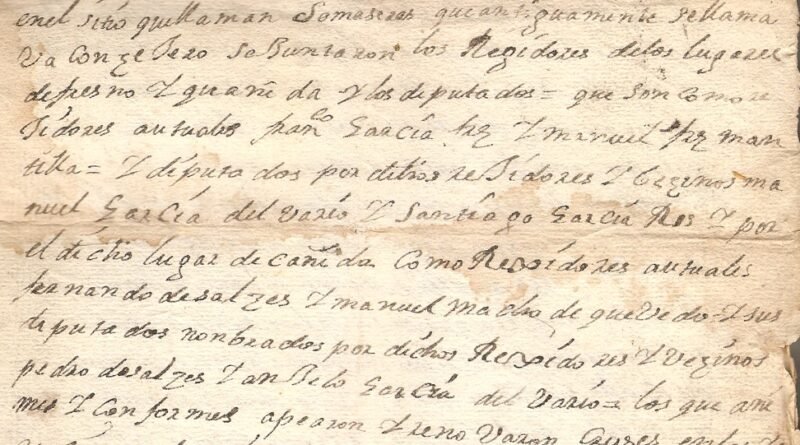 en el sitio que llaman Somaseras que antiguamente se llama
va Conzejero se Juntaron los Regidores de los lugares
de fresno Y quañeda y los diputados = que son como re
Jidores autuales fran^co Garcia frz Y manuel frz man
tilla = Y diputados por dichos reJidores Y bezinos ma
nuel Garcia del vario Y Santiago Garcia Ros Y por
el dicho lugar de cañeda Como Rexidores autuales
fernando de salzes Y manuel macho de quevedo Y sus
diputados nonbrados por dichos Rexidores Y Vezinos
pedro de salzes Y anJelo Garcia del Vario = los que ani
mes Y Conformes apearon Y reno varon Cruzes en